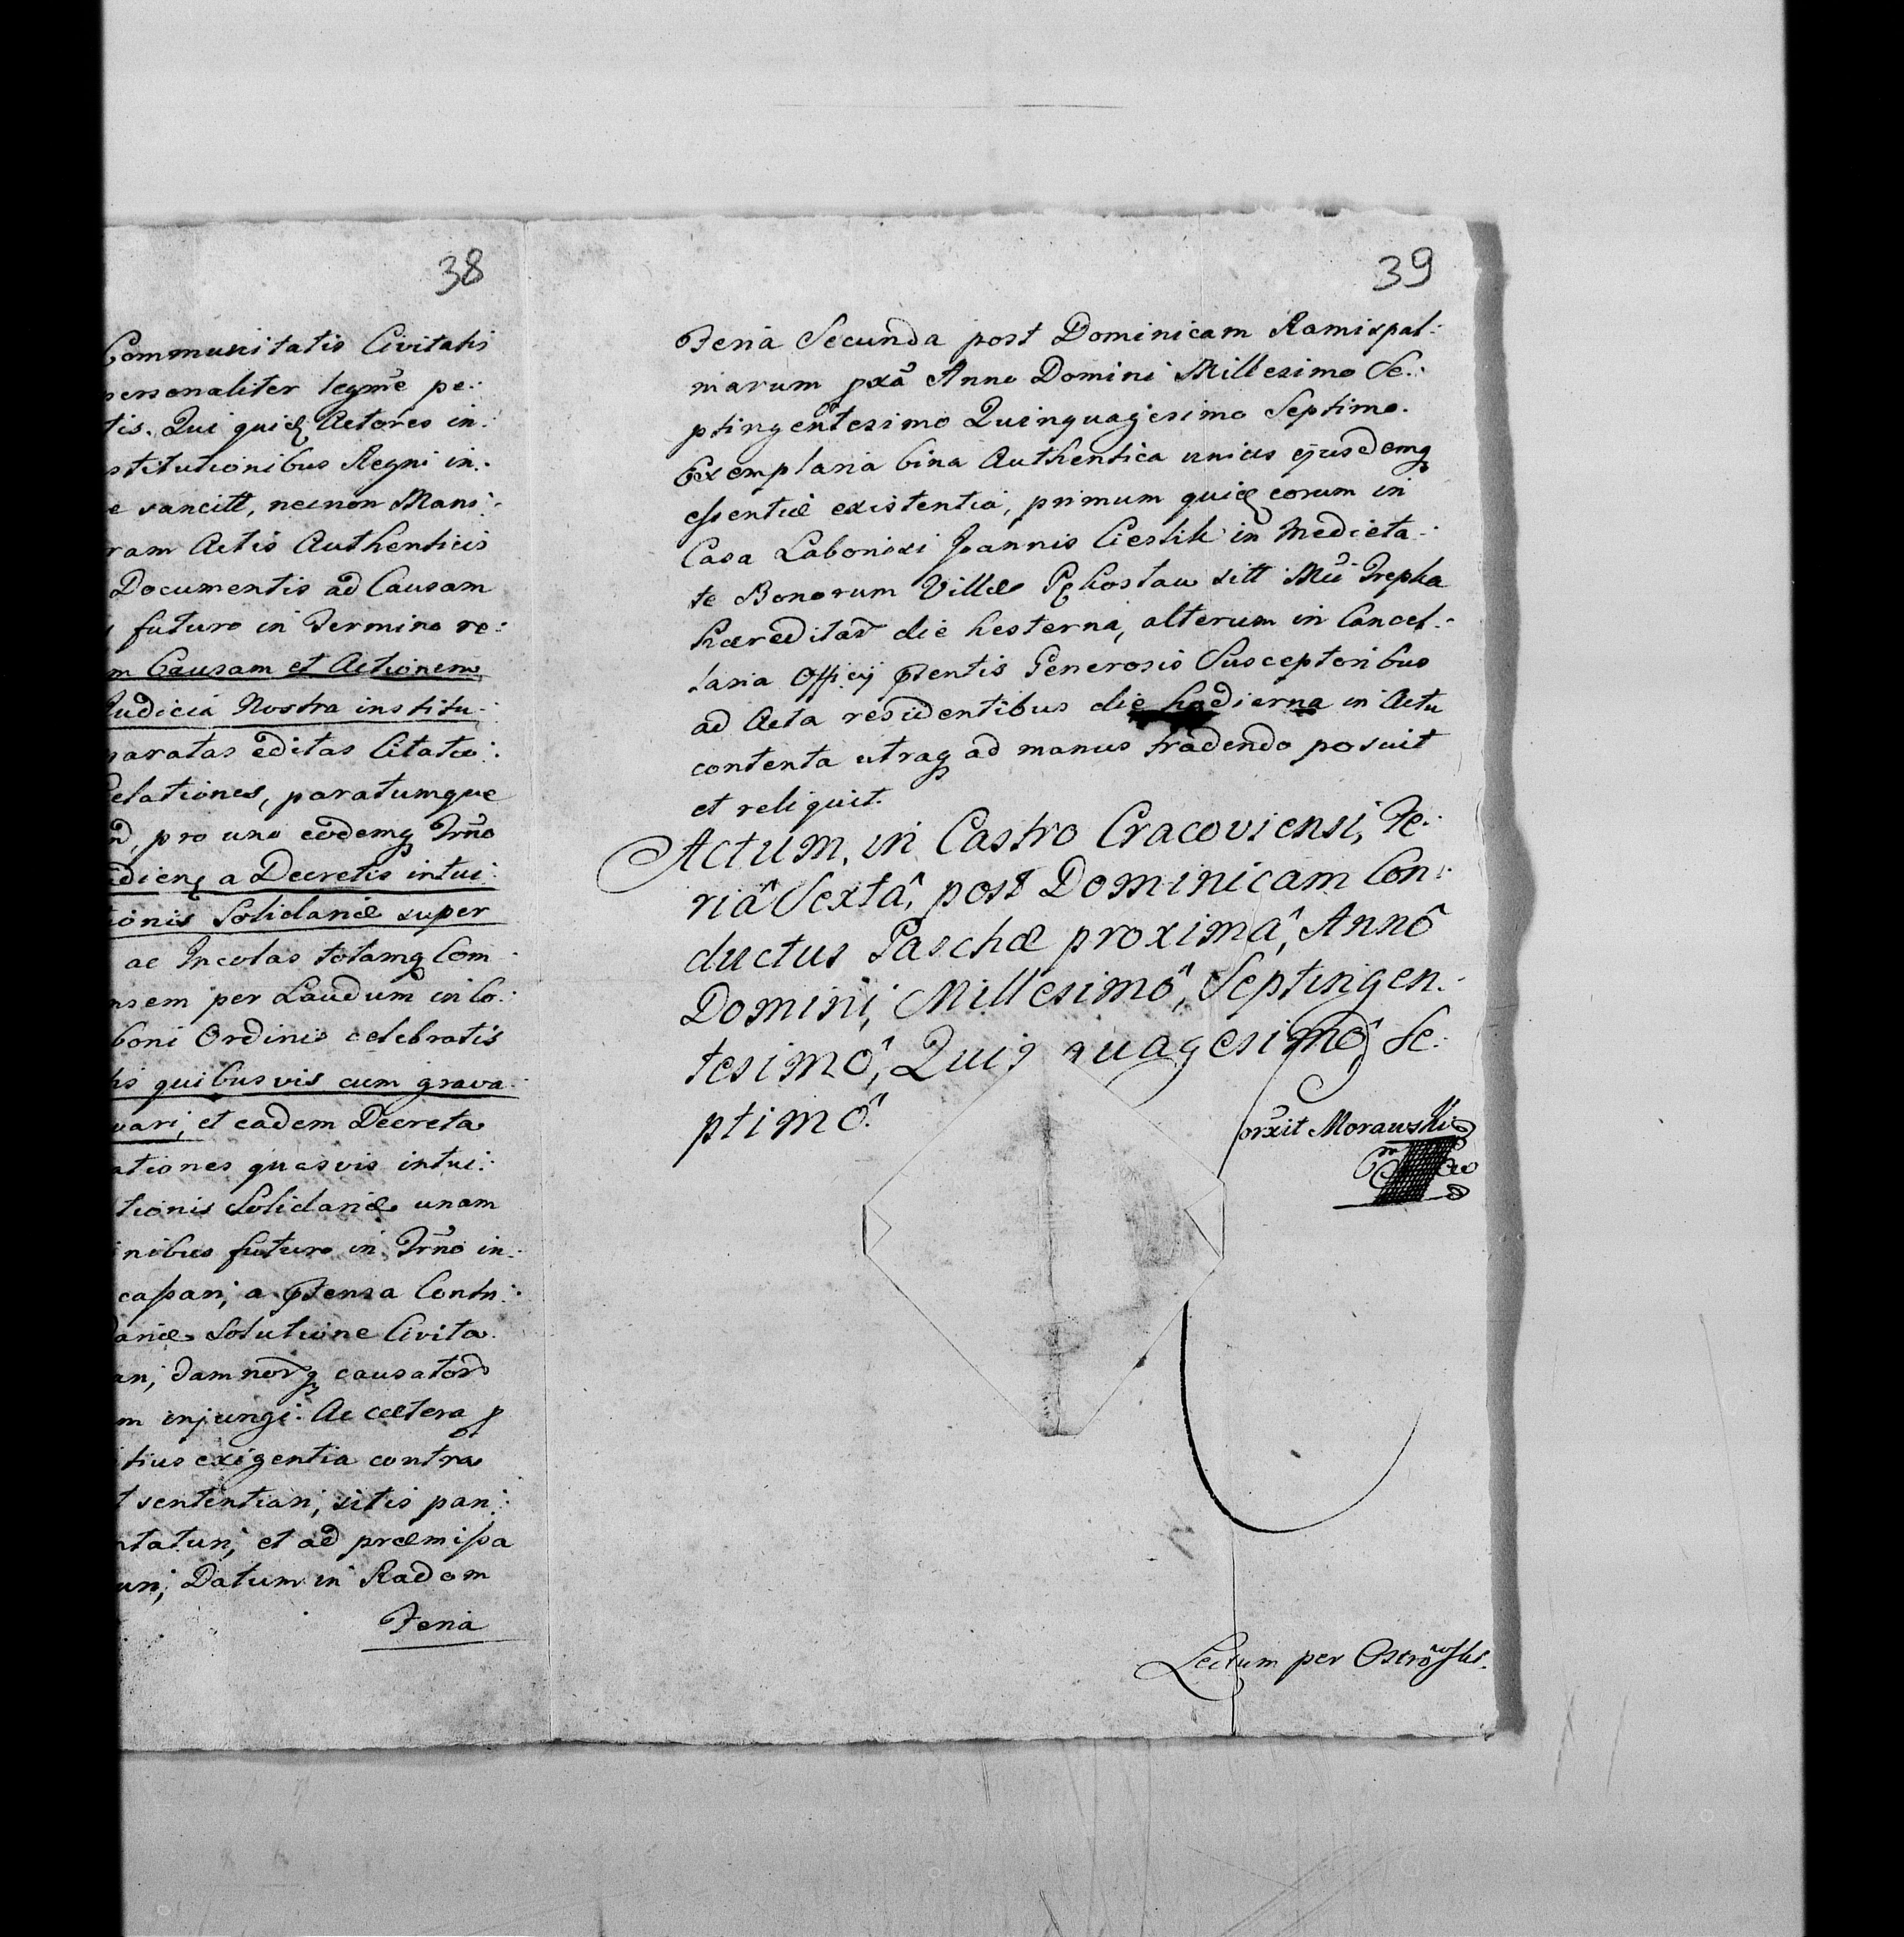 38
Communitatis Civitatis
personaliter legme pe:
tis. Qui quid Actores in:
stitutionibus Regni in:
e sancitt, necnon Mani:
ram Actis Authenticis
Documentis ad Causam
futuro in Termino re:
m Causam et Actionem
Judicia Nostra institu:
paratas editas Citatio:
Relationes, paratumque
pro uno eodemq Trno
a Decretis intui:
tionis Solidariæ super
ac Incolas totamq Com
nsem per Laudum in Co:
boni Ordinis celebratis
his quibusvis cum grava:
vari, et eadem Decreta
ationes quasvis intui:
tionis Solidariæ unam
nibus futuro in Trno in:
cassari, a ptensa Contri:
dariæ Solutione Civita
ari, damnorq causator
m injungi. Ac cætera p
tius exigentia contra
t sententiari, sitis pari:
ntaturi, et ad præmissa
uri, Datum in Radom
Feria
39
Feria Secunda post Dominicam Ramispal:
marum pxa Anno Domini Millesimo Se:
ptingentesimo Quinquagesimo Septimo.
Exemplaria bina Authentica unius ejusdemq
essentiæ existentia, primum quid eorum in
Casa Laboriosi Joannis Cieslik in Medieta:
te Bonorum Villæ sitt Mci Trepka
hæreditar die hesterna, alterum in Cancel:
laria Officij ptentis Generosis Susceptoribus
ad Acta residentibus die hodierna in Actu
contenta utraq ad manus tradendo posuit
et reliquit.
Actum, in Castro Cracoviensi, Fe:
riâ Sextâ, post Dominicam Con:
ductus Paschæ proximâ, Annô
Domini, Millesimô, Septingen:
tesimô, Quinquagesimô Se:
ptimô.
Corxit Morawski
Lectum per Ostrowski.